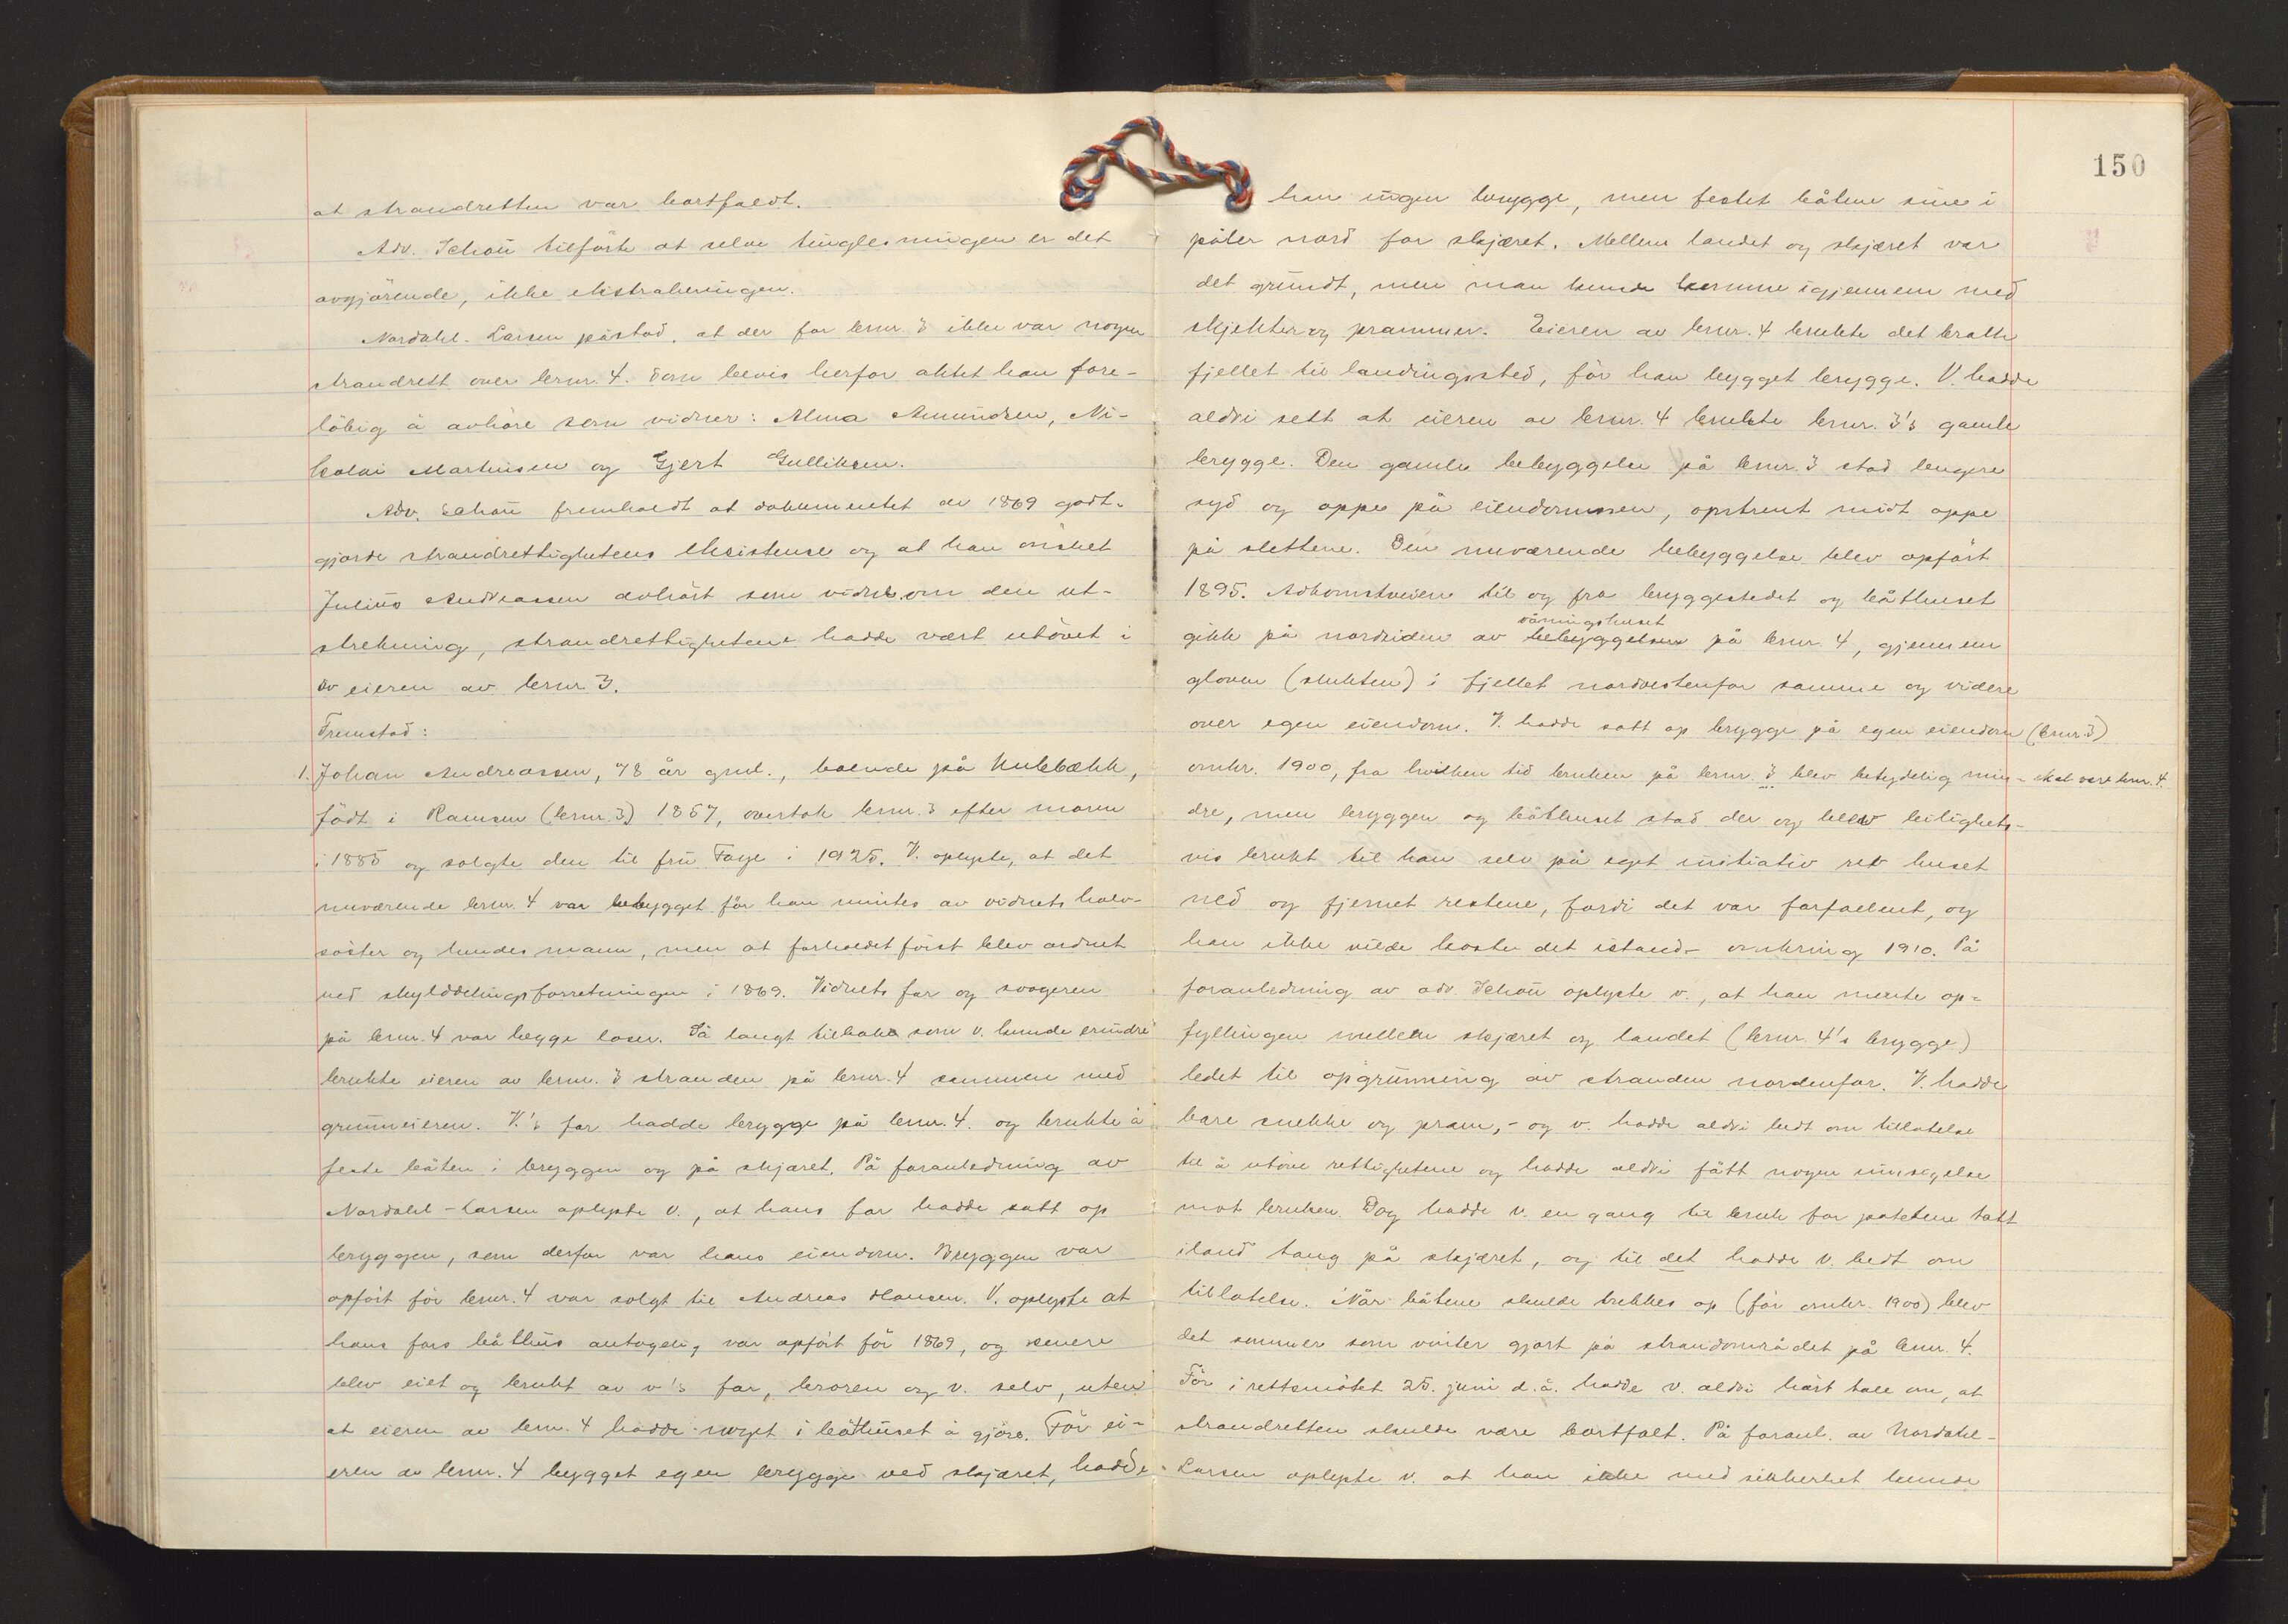 at strandretten var bortfaldt.
Adv. Schou tilförte at selve tinglesningen er det
avgjörende, ikke ekstraheringen.
Nordahl-Larsen påstod, at der for brnr. 3 ikke var nogen
strandrett over brnr. 4. Som bevis herfor aktet han fore-
löbig å avhöre som vidner: Alma Amundsen, Ni-
kolai Martinsen og Gjert Gulliksen.
Adv. Schou fremholdt at dokumentet av 1869 godt-
gjorde strandrettighetens eksistense og at han önsket
Julius Andreassen avhört som vidne om den ut-
strekning, strandrettighetene hadde vært utövet i
av eieren av brnr. 3.
Fremstod:
1. Johan Andreassen, 78 år gml., boende på Hulebækk,
födt i Ramsen (brnr. 3) 1857, overtok brnr. 3 efter moren
i 1885 og solgte den til fru Faye i 1925. V. oplyste, at det
nuværende brnr. 4 var bebygget för han mintes av vidnets halv-
söster og hendes mann, men at forholdet först blev ordnet
ved skylddelingsforretningen i 1869. Vidnets far og svogeren
på brnr. 4 var begge loser. Så langt tilbake som v. kunde erindre
brukte eieren av brnr. 3 stranden på brnr. 4 sammen med
grunneieren. V.'s far hadde brygge på brnr. 4. og brukte å
feste båten i bryggen og på skjæret. På foranledning av
Nordahl-Larsen oplyste v., at hans far hadde satt op
bryggen, som derfor var hans eiendom. Bryggen var
opfört för brnr. 4 var solgt til Andreas Hansen. V. oplyste at
hans fars båthus antagelig var opfört för 1869, og senere
blev eiet og brukt av v's far, broren og v. selv, uten
at eieren av brnr. 4 hadde noget i båthuset å gjöre. För ei-
eren av brnr. 4 bygget egen brygge ved skjæret, hadde
150
han ingen brygge, men festet båtene sine i
påler nord for skjæret. Mellem landet og skjæret var
det grundt, men man kunde komme igjennem med
skjekter og prammer. Eieren av brnr. 4 brukte det bratte
fjellet til landingssted, för han bygget brygge. V. hadde
aldri sett at eieren av brnr. 4 brukte brnr. 3's gamle
brygge. Den gamle bebyggelse på brnr. 3 stod lengere
syd og oppe på eiendommen, omtrent midt oppe
på slettene. Den nuværende bebyggelse blev opfört
1895. Adkomstveien til og fra bryggestedet og båthuset
våningshuset
gikk på nordsiden av bebyggelsen på brnr. 4, gjennem
gloven (slukten) i fjellet nordvestenfor samme og videre
over egen eiendom. V. hadde satt op brygge på egen eiendom (brnr. 3)
omkr. 1900, fra hvilken tid bruken på brnr. 3 blev betydelig min- skal være brnr. 4.
dre, men bryggen og båthuset stod der og blev leilighets-
vis brukt til han selv på eget initiativ rev huset
ned og fjernet restene, fordi det var forfallent, og
han ikke vilde koste det istand - omkring 1910. På
foranledning av adv. Schou oplyste v., at han mente op-
fyllingen mellem skjæret og landet (brnr. 4's brygge)
ledet til opgrunning av stranden nordenfor. V. hadde
bare snekke og pram, - og v. hadde aldri bedt om tillatelse
til å utöve rettighetene og hadde aldri fått nogen innsigelse
mot bruken. Dog hadde v. en gang til bruk for potetene tatt
iland tang på skjæret, og til det hadde v. bedt om
tillatelse. Når båtene skulde trekkes op (för omkr. 1900) blev
det sommer som vinter gjort på strandområdet på brnr. 4.
För i rettsmötet 25. juni d.å. hadde v. aldri hört tale om, at
strandretten skulde være bortfalt. På foranl. av Nordahl-
Larsen oplyste v. at han ikke med sikkerhet kunde